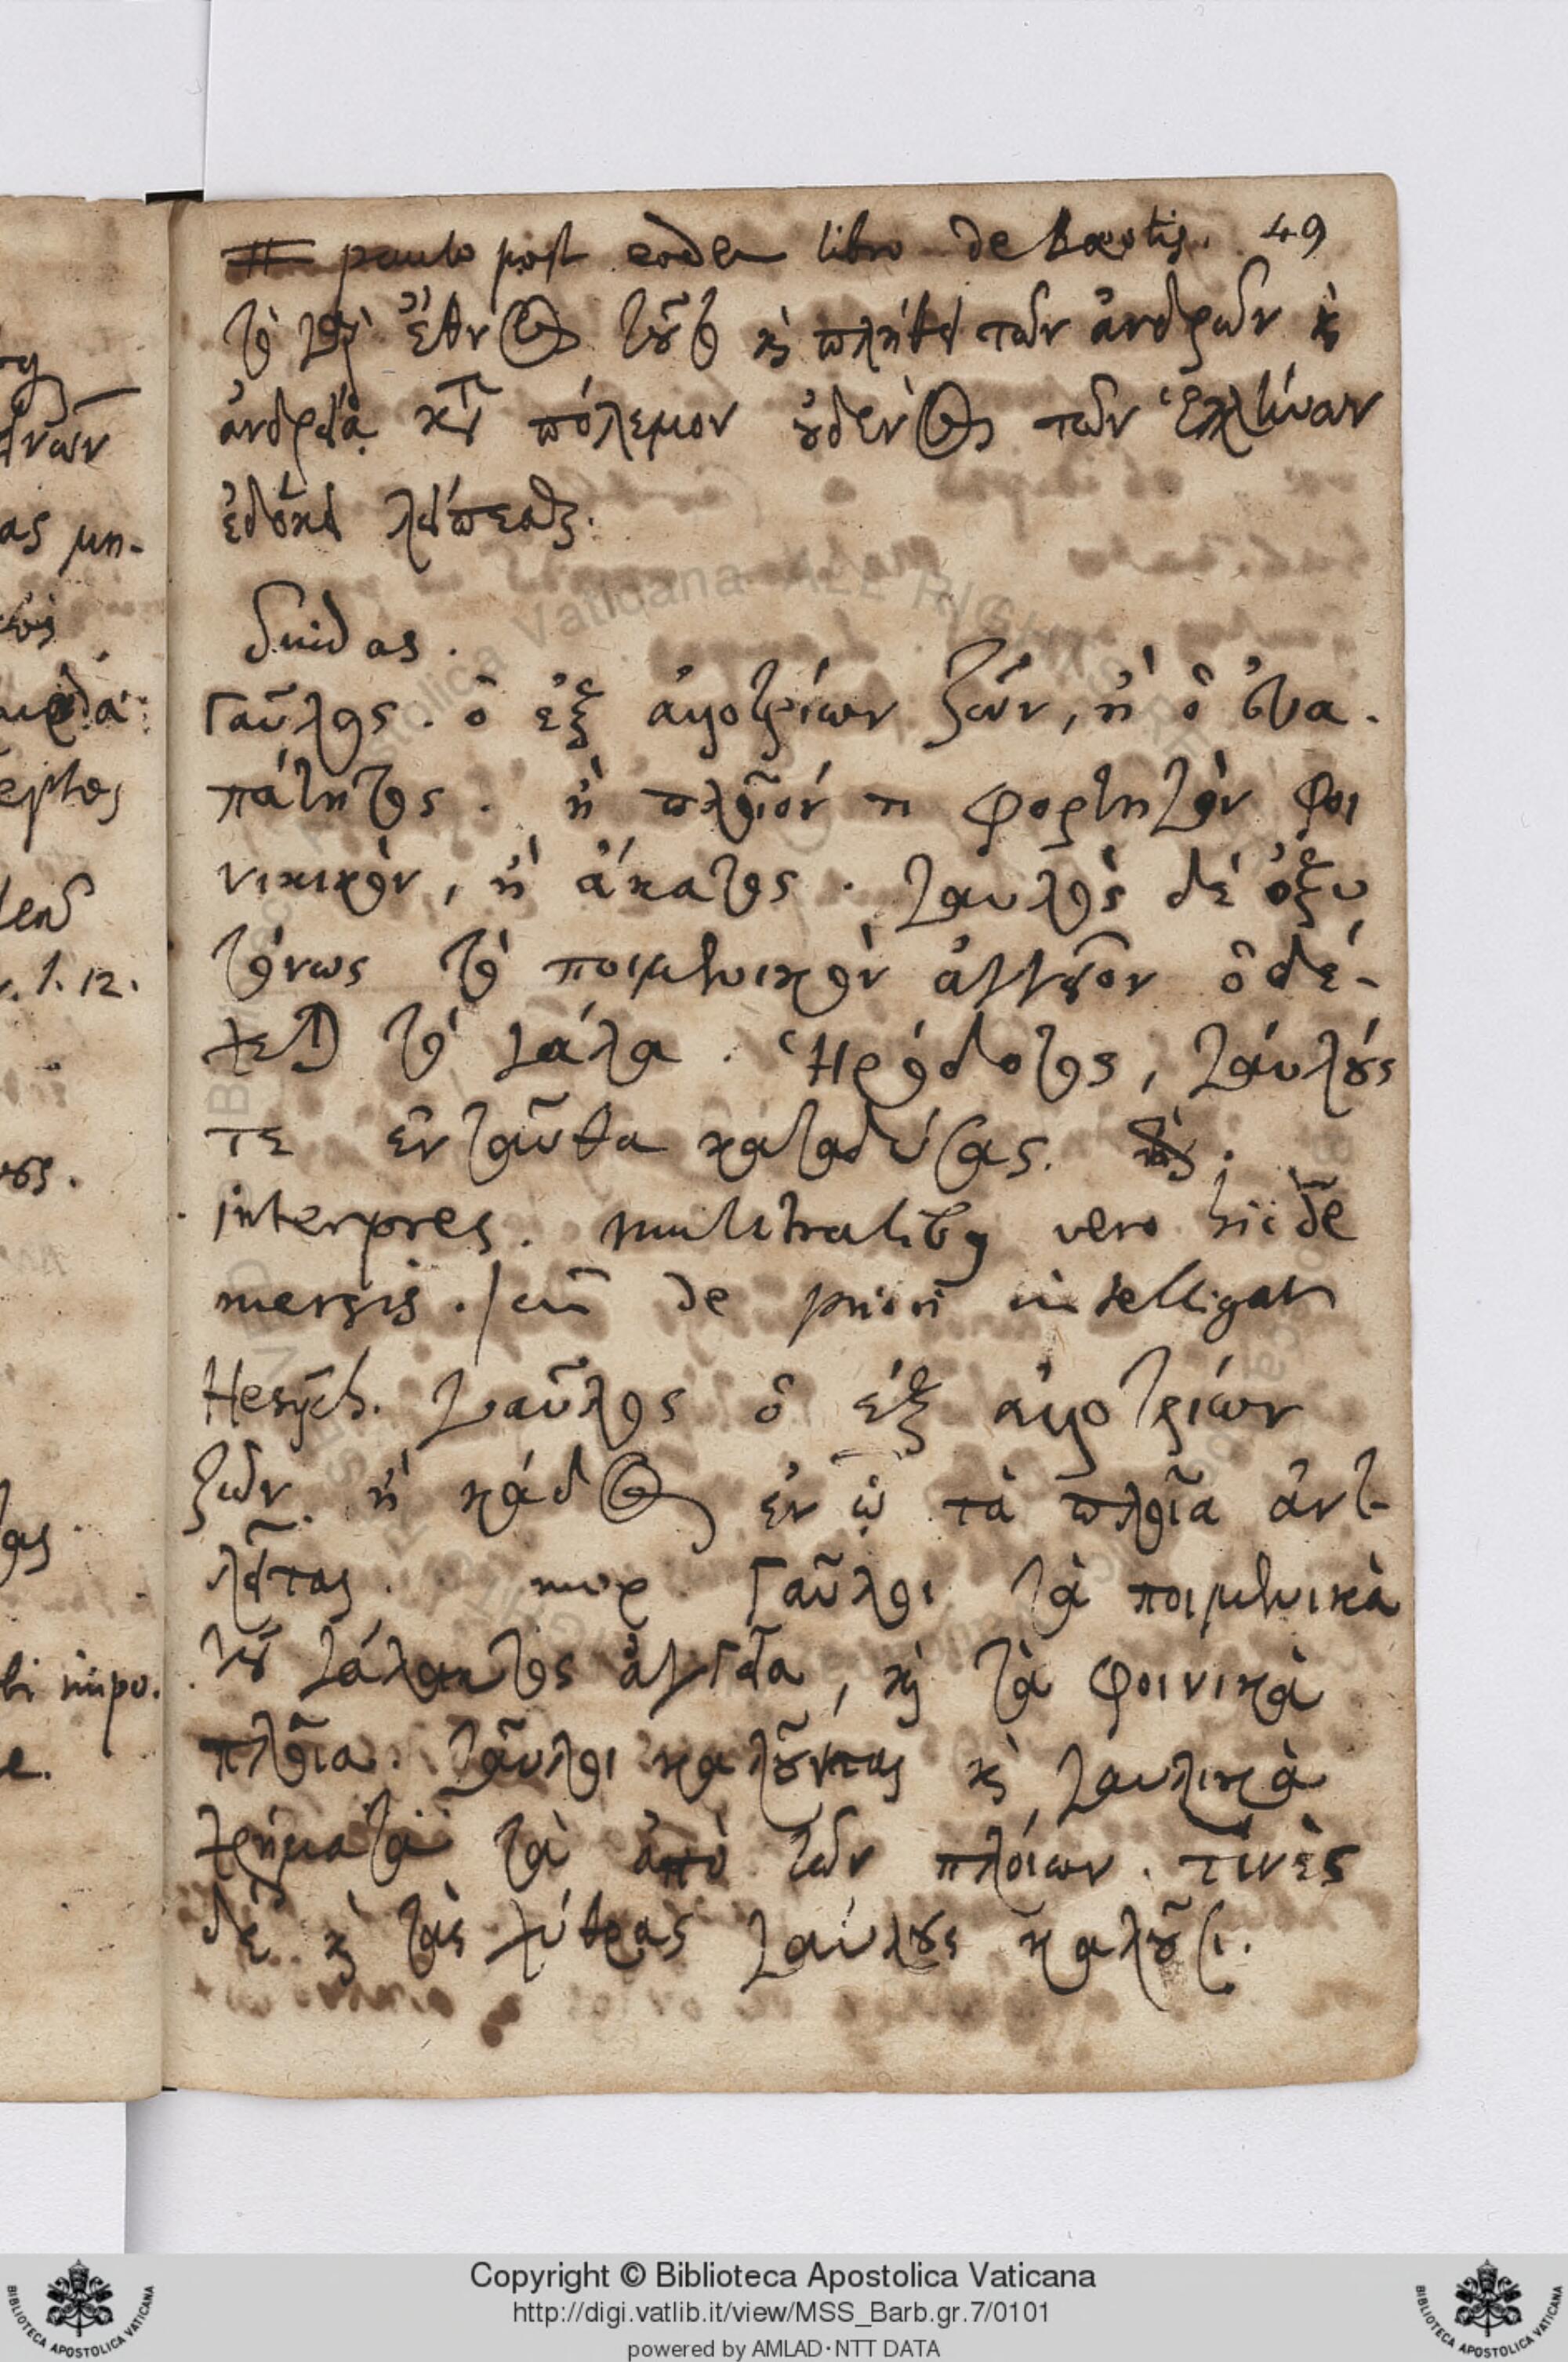 paulo post eodem libro de Baeotis. 49
τὸ γὰρ ἔθνος τοῦτο κ πλήθει τῶν ἀνδρῶν κ
ἀνδρείᾳ κτ πόλεμον οὐδενὸς τῶν Ἑλλήνων
ἐδόκει λείπεσθαι.
Suidas.
Γαῦλος. ὁ ἐξ ἀλλοτρίων ζῶν, ἢ ὁ εὐα-
πάτητος. ἢ πλοῖόν τι φορτητὸν φοι
νικικὸν, ἢ ἄκατος. γαυλὸς δέ ὀξυ
τόνως τὸ ποιμενικὸν ἀγγεῖον ὃ δέ-
χεται τὸ γάλα. Ἡρόδοτος, γαύλούς
τε ἐνταῦθα καταδύσας.
interpres. mulctralibus vero hic de
mersis. / cum de priori intelligat
Hesych. γαῦλος ὁ ἐξ ἀλλοτρίων
ζῶν. ἢ κάδος ἐν ᾧ τὰ πλοῖα ἀντ-
λεῖται. mox Γαῦλοι τὰ ποιμενικὰ
τοῦ γάλακτος ἀγγεῖα, κ τὰ φοινικὰ
πλοῖα. γαῦλοι καλοῦνται κ γαυλικὰ
χρήματα τὰ ἀπὸ τῶν πλόίων. τινὲς
δὲ κ τὰς χύτρας γαύλους καλοῦσι.
Copyright © Biblioteca Apostolica Vaticana
http://digi.vatlib.it/view/MSS_Barb.gr.7/0101
powered by AMLAD·NTT DATA
BIBLIOTECA APOSTOLICA VATICANA
BIBLIOTECA APOSTOLICA VATICANA